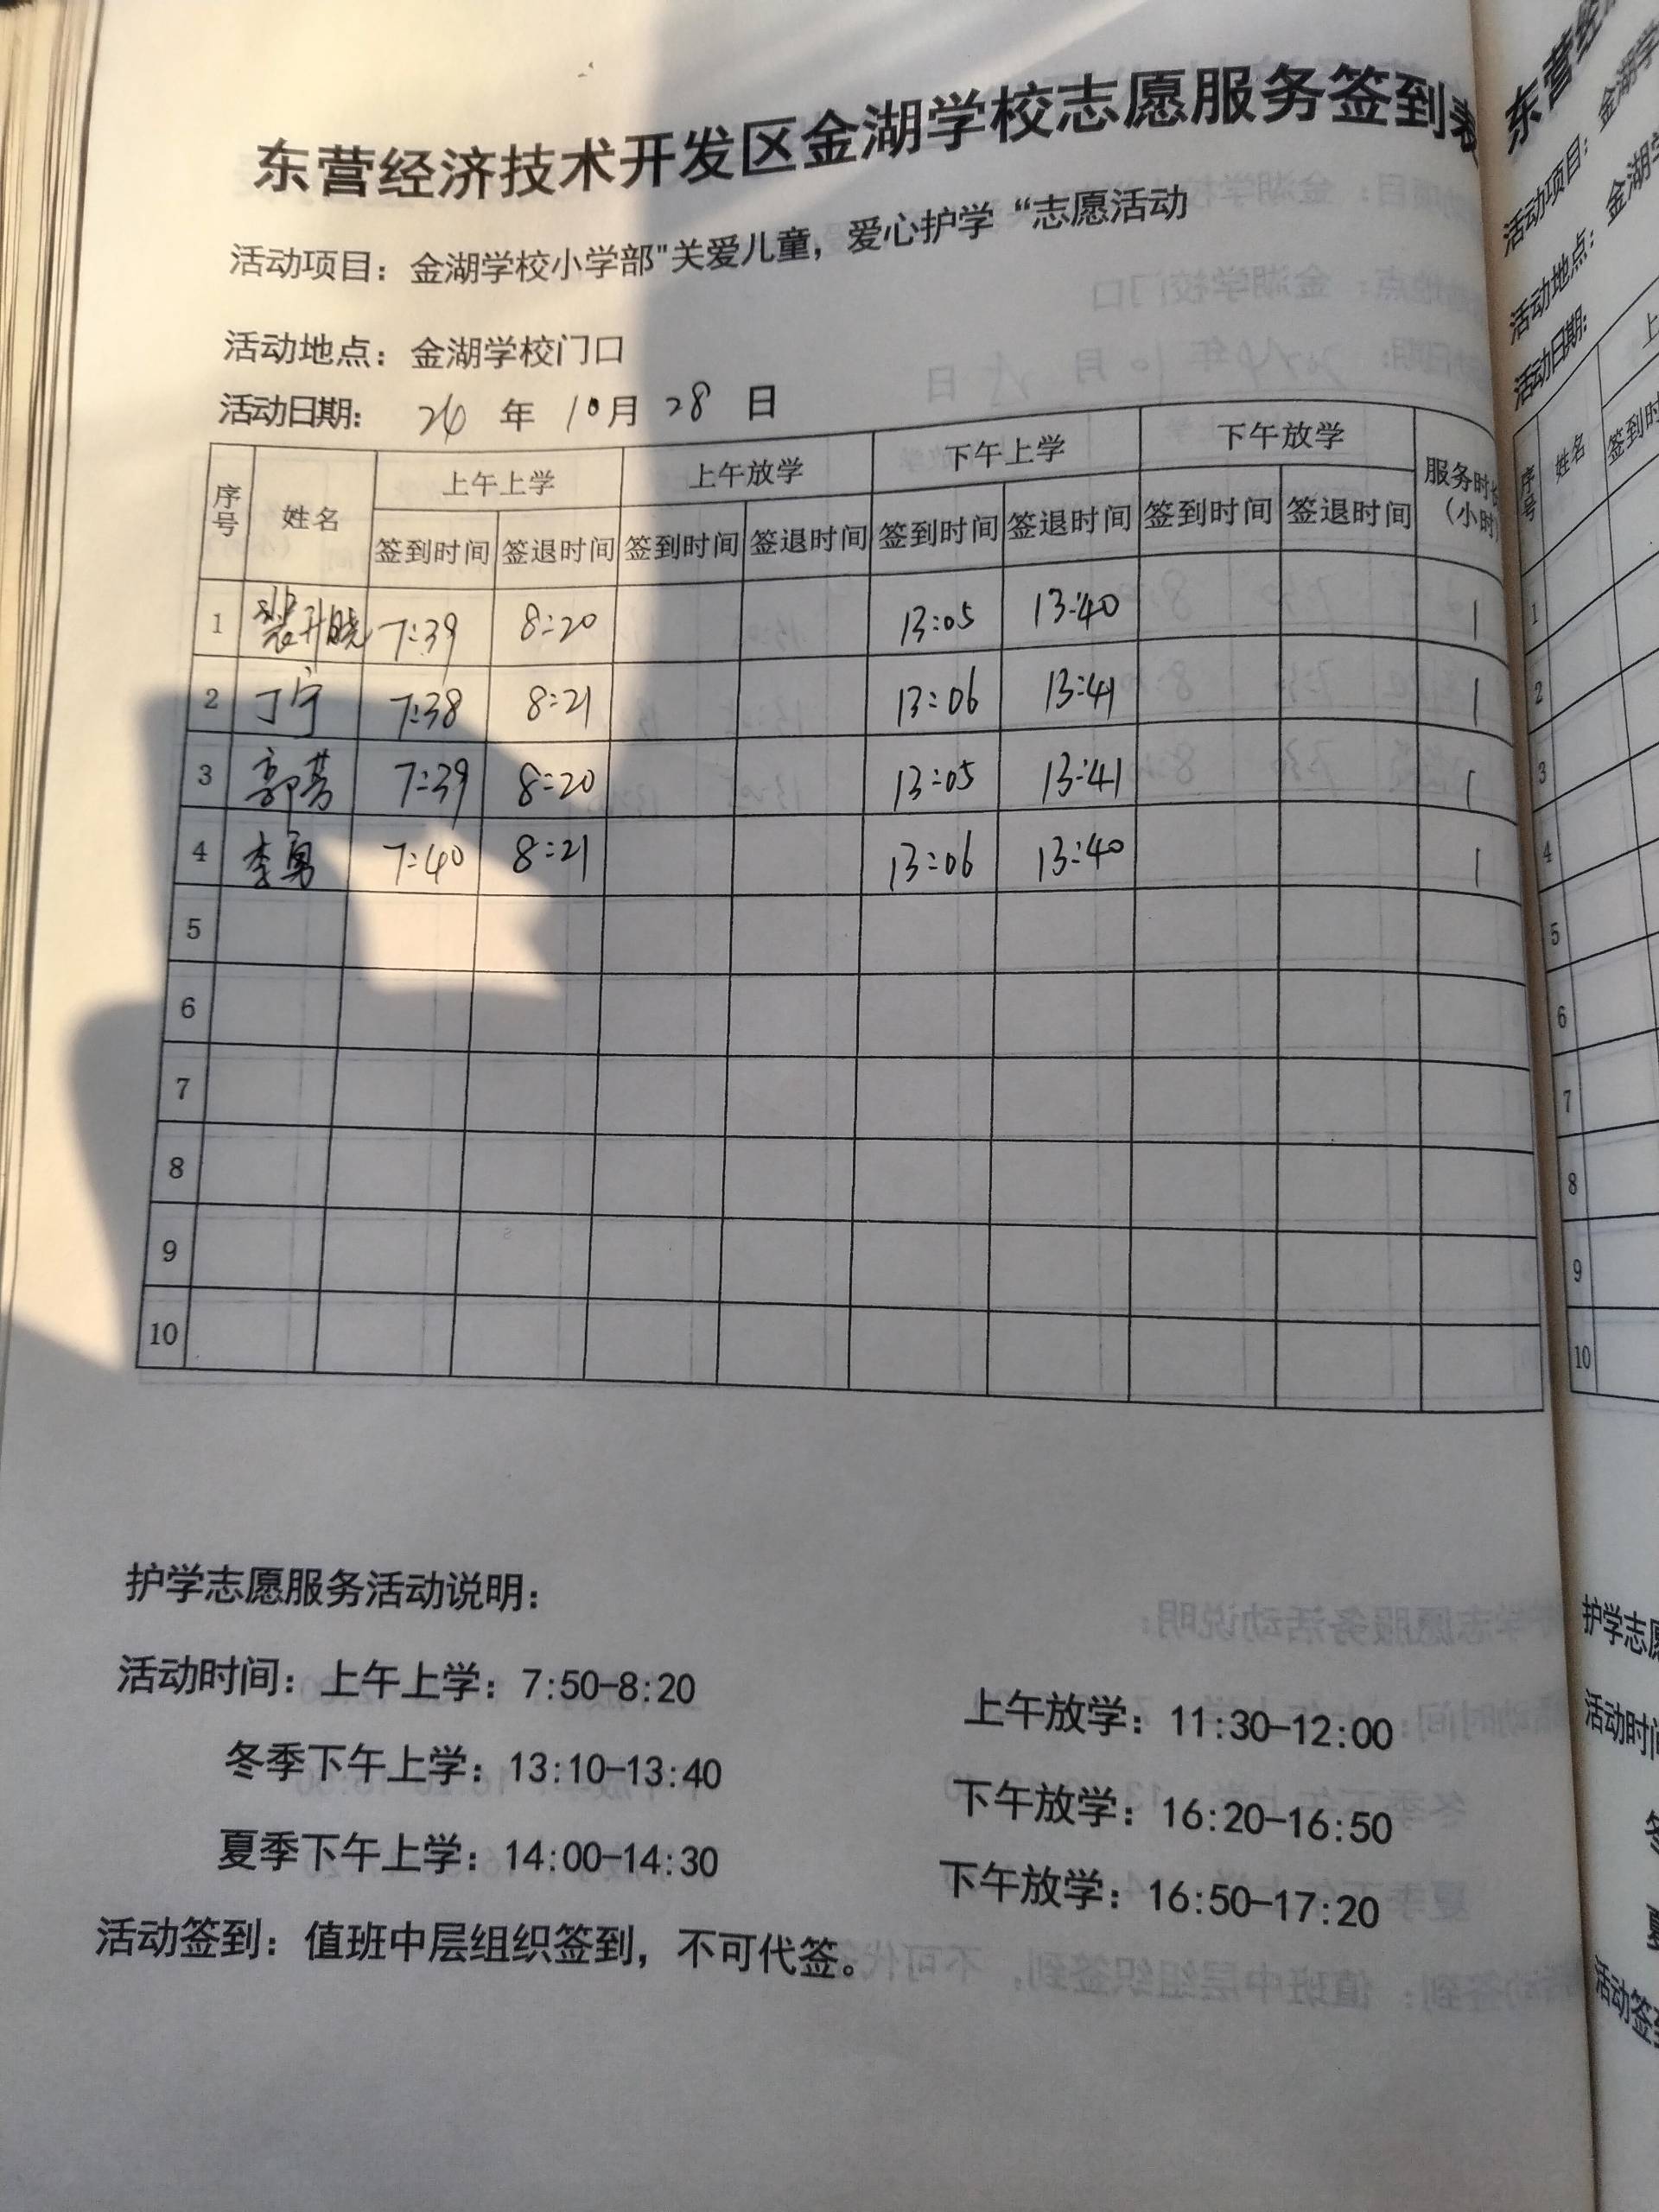 东营经济技术开发区金湖学校志愿服务签到表
活动项目：金湖学校小学部"关爱儿童，爱心护学“志愿活动
活动地点：金湖学校门口
活动日期： 24 年 10月 28 日
序号 姓名 上午上学 上午放学 下午上学 下午放学 服务时长（小时）
签到时间 签退时间 签到时间 签退时间 签到时间 签退时间 签到时间 签退时间
1 裴升晓 7:39 8:20 13:05 13:40 1
2 丁宁 7:38 8:21 13:06 13:41 1
3 郭芳 7:39 8:20 13:05 13:41 1
4 李勇 7:40 8:21 13:06 13:40 1
5
6
7
8
9
10
护学志愿服务活动说明：
活动时间：上午上学：7:50-8:20 上午放学：11:30-12:00
冬季下午上学：13:10-13:40 下午放学：16:20-16:50
夏季下午上学：14:00-14:30 下午放学：16:50-17:20
活动签到：值班中层组织签到，不可代签。
东营经
活动项目：金湖学
活动地点：金湖学
活动日期：
序号 姓名 上
签到时
1
2
3
4
5
6
7
8
9
10
护学志愿
活动时间
冬
夏
活动签到